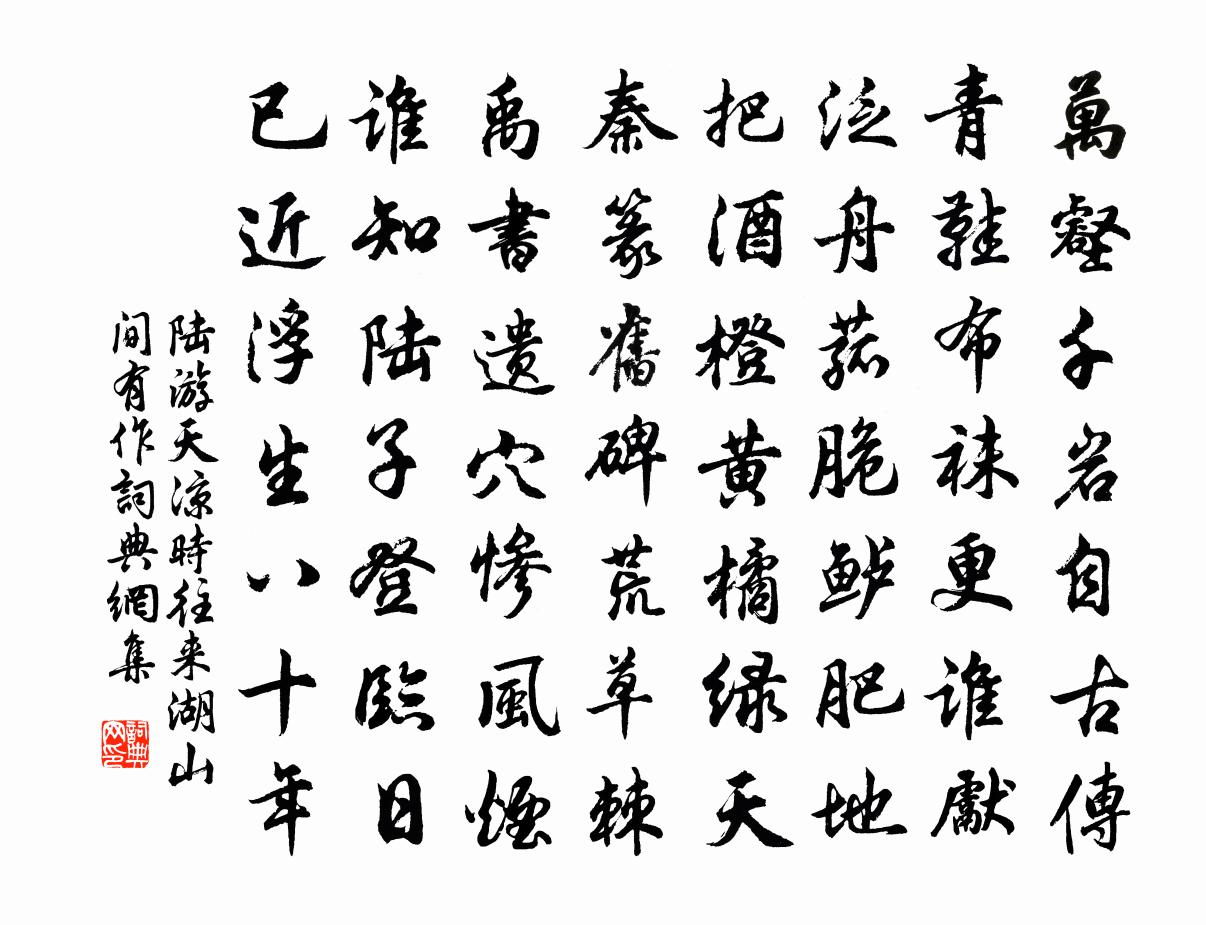 萬壑千岩自古傳
青鞋布袜更谁獻
泛舟菰脆鲈肥地
把酒橙黄橘绿天
秦篆舊碑荒草棘
禹書遗穴惨風煙
谁知陆子登臨日
已近浮生八十年
陆游天凉時往来湖山
间有作詞典網集
詞典
网印